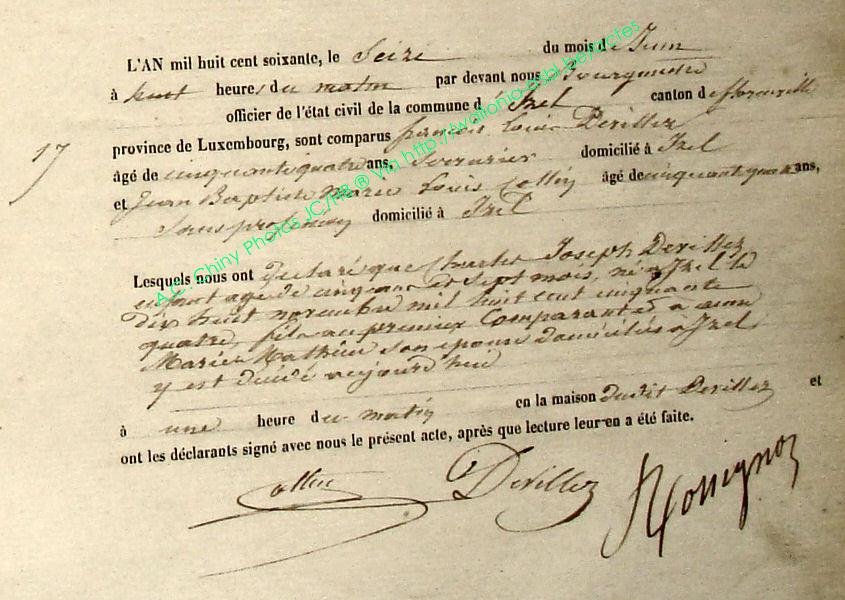 L'AN mil huit cent soixante, le Seize du mois de Juin
à huit heures du matin par devant nous Bourgmestre
officier de l'état civil de la commune d'Izel canton de florenville
17
province de Luxembourg, sont comparus françois Louis Devillez
âgé de cinquante quatre ans, Serrurier domicilié à Izel
et Jean Baptiste Marie Louis Collin âgé de cinquante ans,
Sans profession domicilié à Izel
Lesquels nous ont déclaré que Charles Joseph Devillez
enfant agé de cinq ans et sept mois, né a Izel le
dix huit novembre mil huit cent cinquante
quatre, fils du premier Comparant et a
Marie Mathieu son épouse domiciliés a Izel,
y est décédé aujourd'hui
à une heure du matin en la maison dudit Devillez et
ont les déclarants signé avec nous le présent acte, après que lecture leur en a été faite.
Collin Devillez Rossignon
A.C. Chiny Photos JC/HB ® via http://wallonia-asbl.be/actes